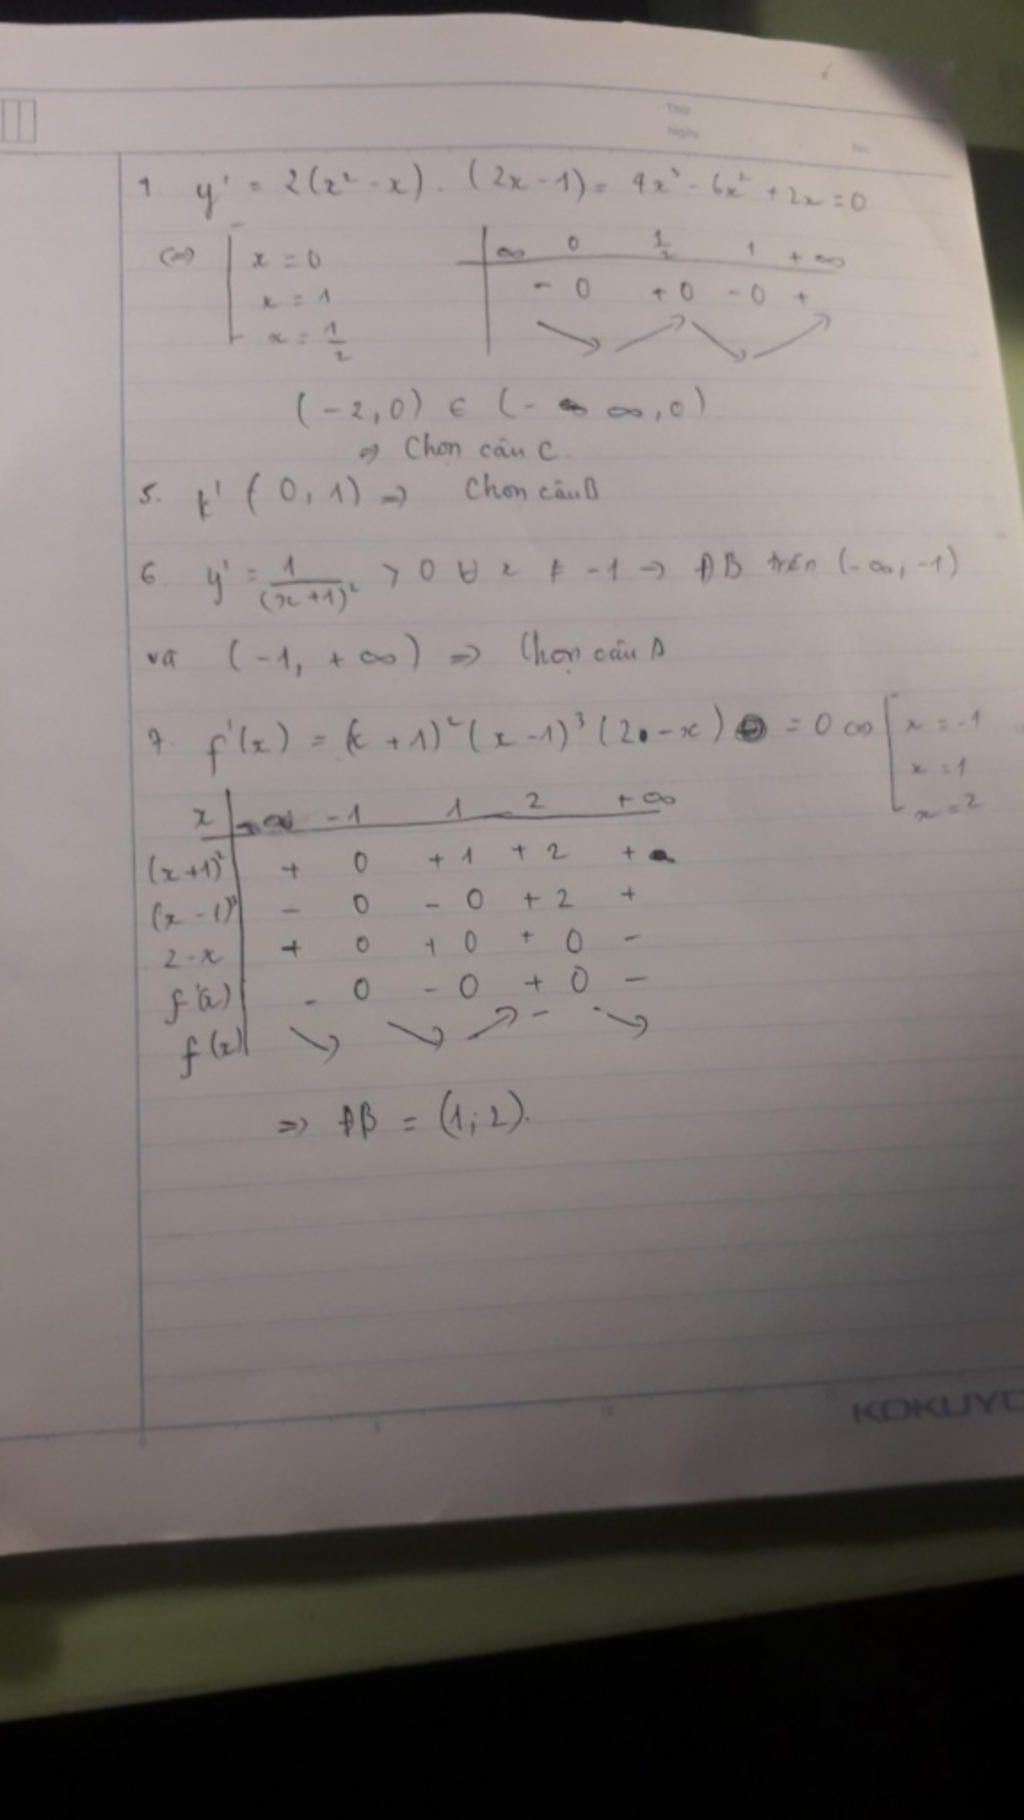 Thứ
Ngày
No.
1. y' = 2(x² - x) . (2x - 1) = 4x³ - 6x² + 2x = 0
(=) x = 0
x = 1
x = 1/2
∞ 0 1/2 1 +∞
- 0 + 0 - 0 +
(-2, 0) ∈ (-∞, 0)
=> Chọn câu C.
5. (0, 1) => Chọn câu B
6 y' = 1/(x+1)² > 0 ∀ x ≠ -1 => ĐB trên (-∞, -1)
và (-1, +∞) => Chọn câu
7. f'(x) = (x+1)² (x-1)³ (2-x) = 0 x = -1
x = 1
x = 2
x -∞ -1 1 2 +∞
(x+1)² + 0 + 1 + 2 +
(x-1)³ - 0 - 0 + 2 +
2-x + 0 + 0 + 0 -
f'(x) - 0 - 0 + 0 -
f(x) ↘ ↘ ↗ - ↘
=> ĐB = (1; 2).
KOKUYO
0 5 10